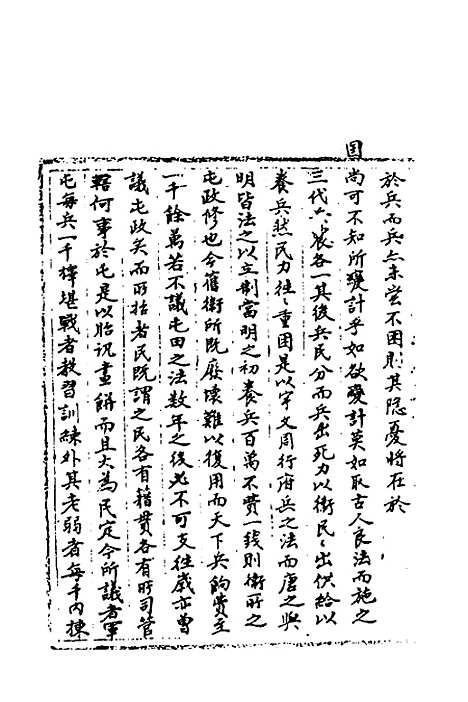 國
於兵而兵亦未嘗不困則其隱憂將在於
尚可不知所變計乎如欲變計莫如取古人良法而施之
三代六師各一其後兵民分而兵出死力以衛民民出供給以
養兵然民力往往重困是以宇文周行府兵之法而唐之與
明皆法之以立制當明之初養兵百萬不費一錢則衛所之
屯政修也今舊衛所既廢壞難以復用而天下兵餉費至
一千餘萬若不議屯田之法數年之後必不可支往歲亦曾
議屯政矣而所括者民既謂之民各有籍貫各有所司管
轄何事於屯是以貽譏畫餅而且大為民定今所議者軍
屯每兵一千擇堪戰者教習訓練外其老弱者每千內揀